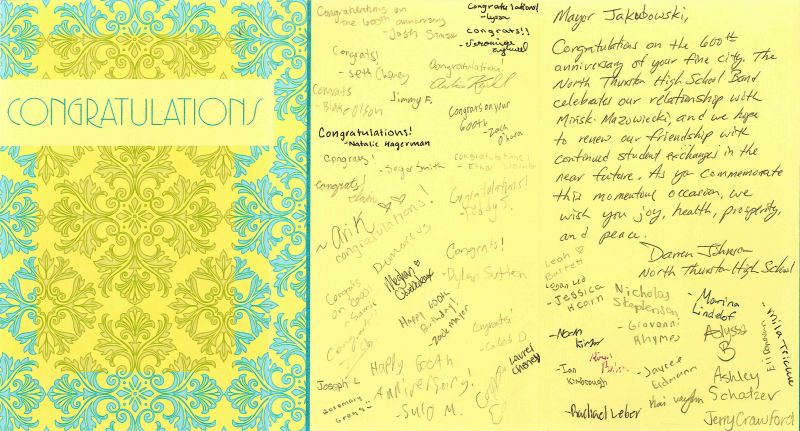 CONGRATULATIONS
Congratulations on
the 600th anniversary
- Josh
Congratulations!
congrats!!
- Veronique
Congrats!
- Seth Cheney
Congratulations!
Congrats
- Blake Olson
Jimmy F.
Congrats on your
600th
- Zack O'hara
Congratulations!
- Natalie Hagerman
Congrats!
- Sagar Smith
congratulations!
- Ethan
congrats!
Congratulations!
Teddy S.
~ Arik
congratulations!
Demarcus
Congrats!
- Dylan Sutton
Meghan
Congrats
on 600!
Happy 600th
Birthday!
- Zack Mayer
Congrats!
- Caleb D
Lauren
Cheney
Happy 600th
Anniversary!
- Sulo M.
Joseph L
Rosemary
Mayor Jakubowski,
Congratulations on the 600th
anniversary of your fine city. The
North Thurston High School Band
celebrates our relationship with
Mińsk-Mazowiecki, and we hope
to renew our friendship with
continued student exchanges in the
near future. As you commemorate
this momentous occasion, we
wish you joy, health, prosperity,
and peace.
Darren Johnson
North Thurston High School
Leah
Barrett
- Jessica
Hearn
Nicholas
Stephenson
- Marina
Lindelof
- Giovanni
Rhymes
Alyssa
B
- Ian
Kimbrough
- Jaycee
Eidmann
Ashley
Schatzer
- Rachael Leber
Kai Vaughn
Jerry Crawford
- Mila Trichue
Eli Donovan